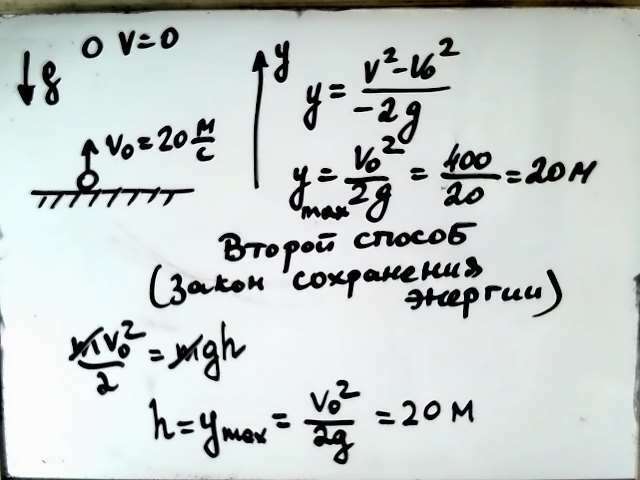 V=0
g
y
y = (V²-V₀²)/(-2g)
V₀=20 м/с
y max = V₀²/2g = 400/20 = 20 м
Второй способ
(Закон сохранения
энергии)
mV₀²/2 = mgh
h = y max = V₀²/2g = 20 м